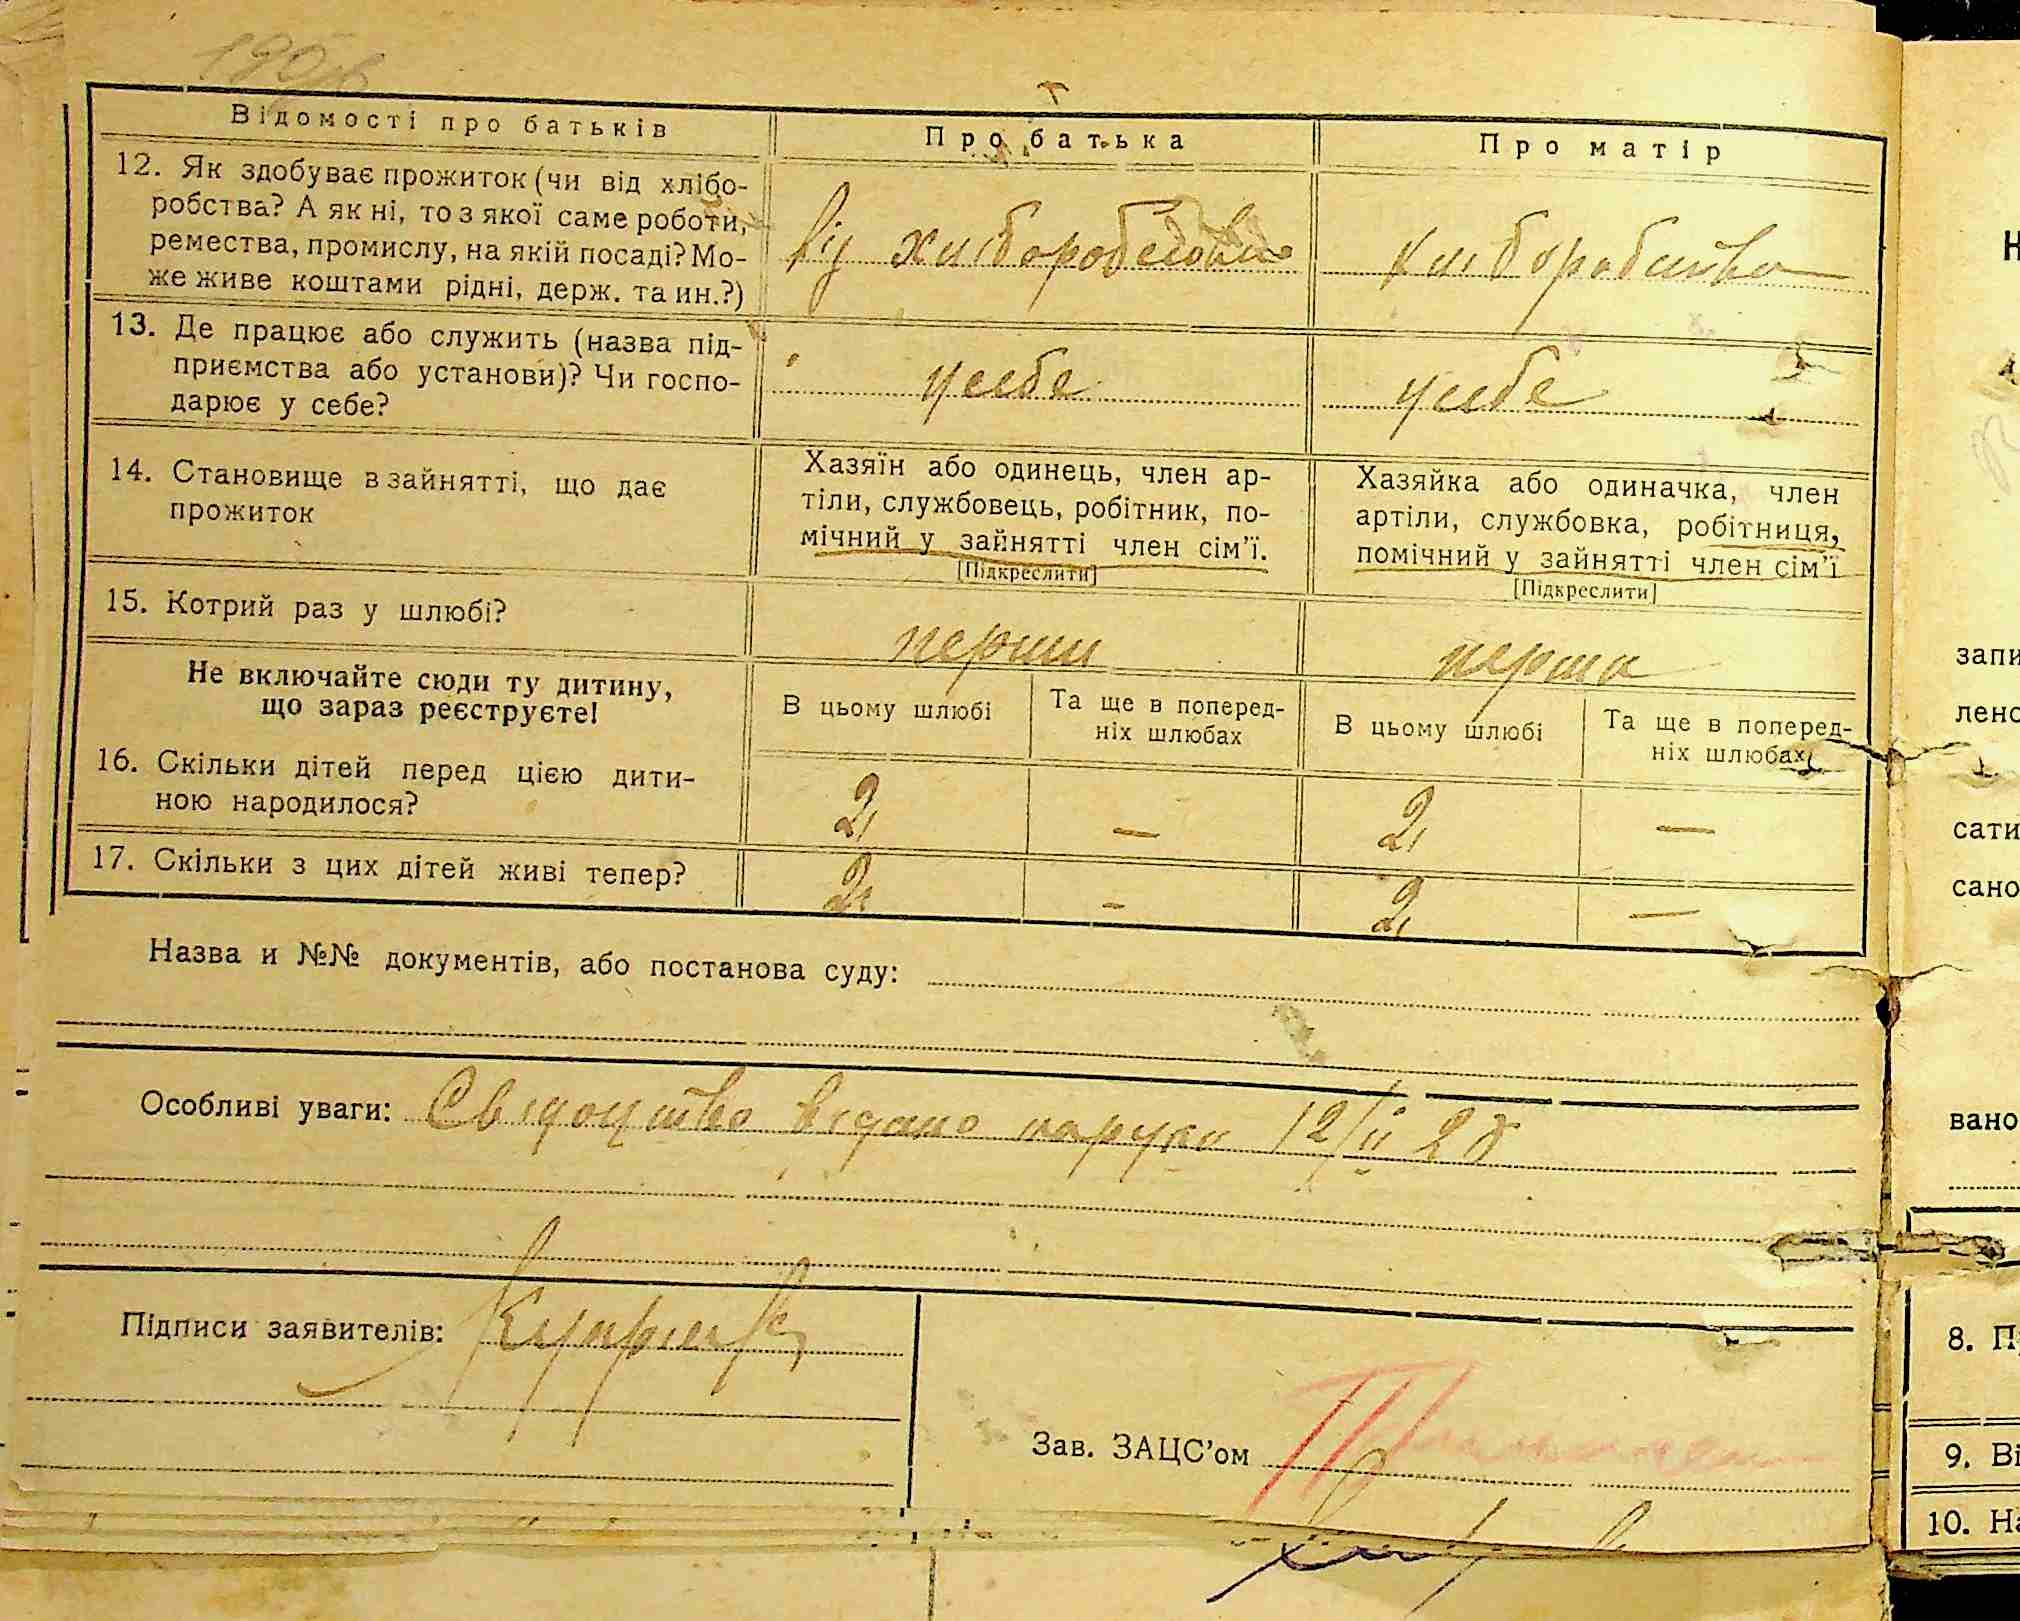 Відомості про батьків Про батька Про матір
12. Як здобуває прожиток (чи від хлібо-
робства? А як ні, то з якої саме роботи,
ремества, промислу, на якій посаді? Мо-
же живе коштами рідні, держ. та ин.?)
від хліборобства хліборобства
13. Де працює або служить (назва під-
приємства або установи)? Чи госпо-
дарює у себе?
у себе у себе
14. Становище в зайнятті, що дає
прожиток
Хазяїн або одинець, член ар-
тіли, службовець, робітник, по-
мічний у зайнятті член сім’ї.
[Підкреслити]
Хазяйка або одиначка, член
артіли, службовка, робітниця,
помічний у зайнятті член сім’ї
[Підкреслити]
15. Котрий раз у шлюбі?
перший перша
Не включайте сюди ту дитину,
що зараз реєструєте!
В цьому шлюбі
Та ще в поперед-
ніх шлюбах
В цьому шлюбі
Та ще в поперед-
ніх шлюбах
16. Скільки дітей перед цією дити-
ною народилося?
2 — 2 —
17. Скільки з цих дітей живі тепер? 2 - 2 —
Назва и №№ документів, або постанова суду:
Особливі уваги: Свідоцтво видано на руки 12/II 28
Підписи заявителів:
Зав. ЗАЦС’ом
запи
лено
сати
сано
вано
8. П
9. Ві
10. На